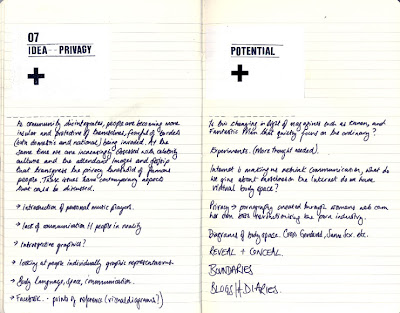 07
IDEA - PRIVACY
As community disintegrates, people are becoming more
insular and protective of themselves, fearful of borders
(both domestic and national) being invaded. At the
same time we are increasingly obsessed with celebrity
culture and the attendant images and gossip
that transgress the privacy of famous
people. These issues have contemporary aspects
that could be discussed.
→ Introduction of personal music players.
→ lack of communication + people in reality
→ Interceptive graphics?
→ looking at people individually graphic representations.
→ Body language, space, communication.
→ Facebook - points of reference (visual diagrams?)
POTENTIAL
Is this changing in light of magazines such as and
Fantastic Man that quietly focus on the ordinary?
Experiments. (More thought needed).
Internet is making us rethink communication, what do
we give about ourselves on the internet do we have
virtual body space?
Privacy → pornography consumed through womens web cam
has own been revolutionising the porn industry.
Diagrams of body space. Cross Gendered, Same Sex. etc.
REVEAL + CONCEAL
BOUNDARIES
BLOGS / DIARIES.